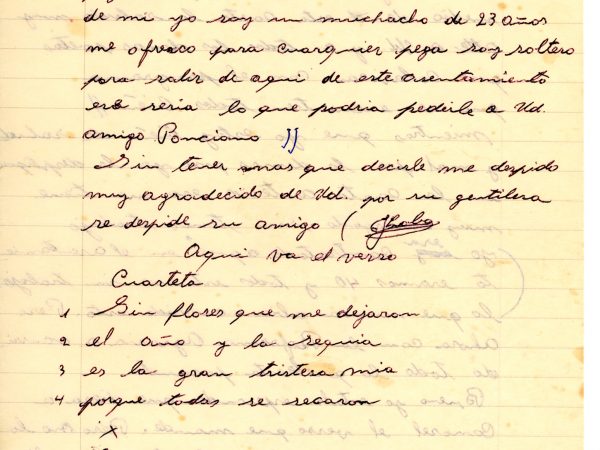 de mi yo soy un muchacho de 23 años
me ofresco para cuarquier pega soy soltero
para salir de aqui de este asentamiento
eso seria lo que podria pedirle a Ud.
amigo Ponciano
Sin tener mas que decirle me despido
muy agradecido de Ud. por su gentilesa
se despide su amigo (
Aqui va el verso
Cuarteta
1 Sin flores que me dejaron
2 el año y la sequia
3 es la gran tristesa mia
4 porque todas se secaron
x